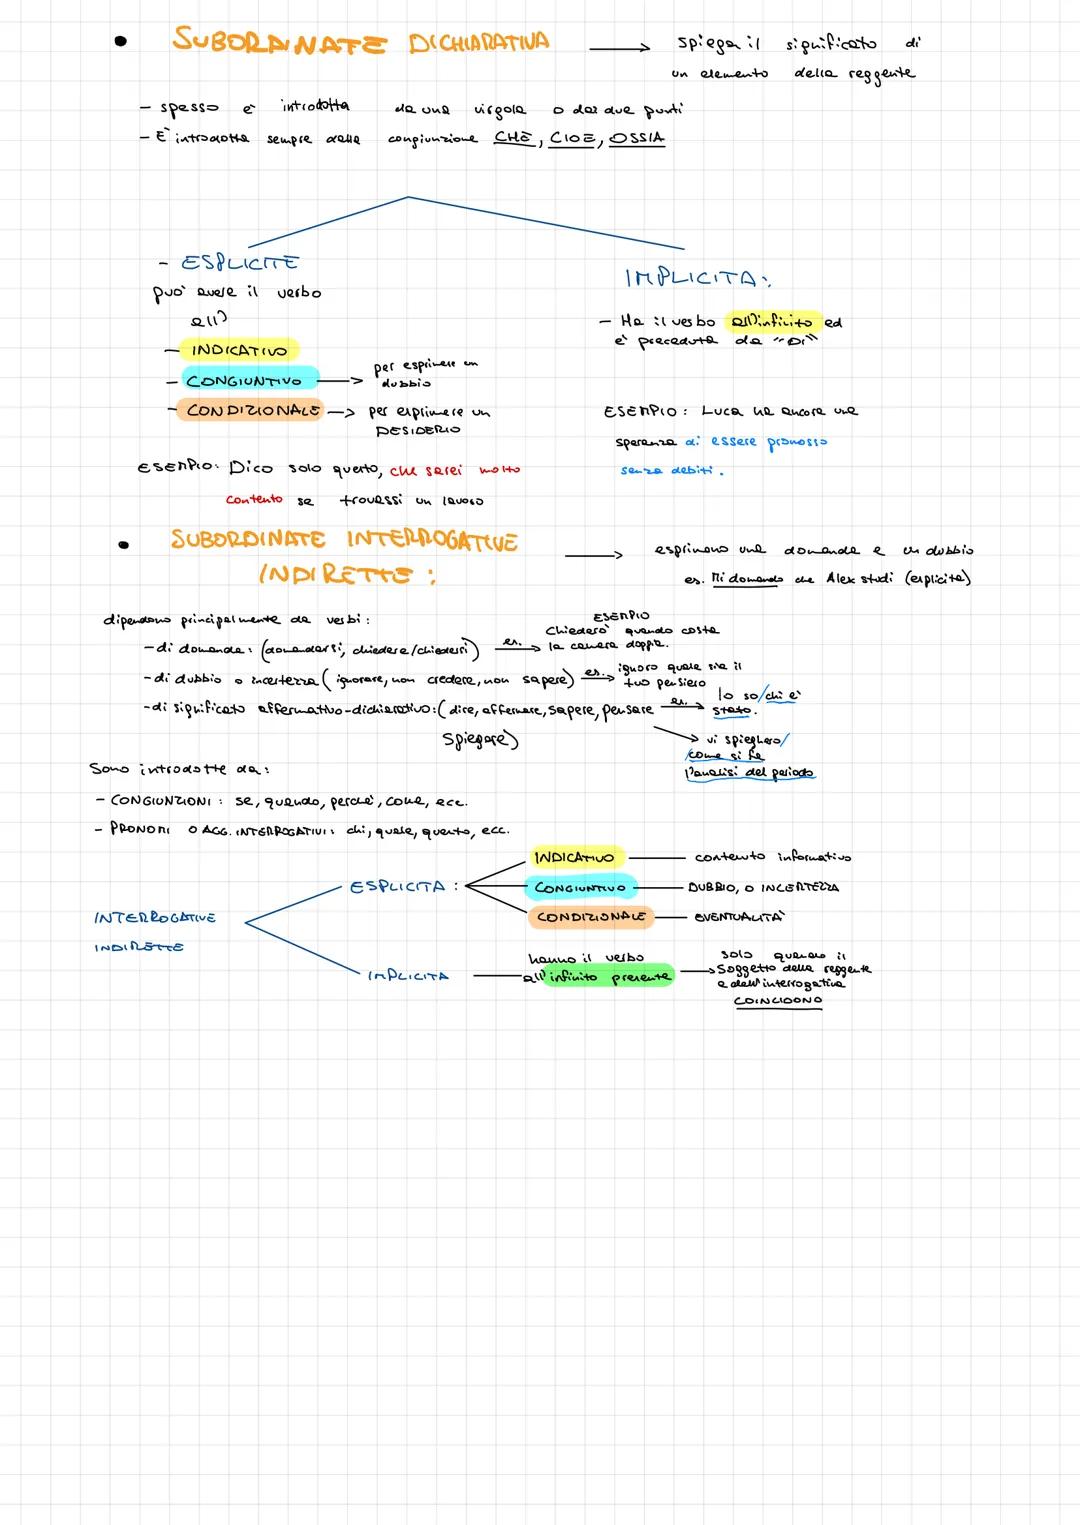 • SUBORDINATE DICHIARATIVA → spiega il significato di
un elemento della reggente
- spesso è introdotta da una virgola o dai due punti
- È introdotta sempre dalla congiunzione CHE, CIOE, OSSIA
- ESPLICITE
può avere il verbo
all'
- INDICATIVO
- CONGIUNTIVO → per esprimere un
dubbio
- CONDIZIONALE → per esprimere un
DESIDERIO
ESEMPIO: Dico solo questo, che sarei molto
contento se trovassi un lavoro
IMPLICITA:
- Ha il verbo all'infinito ed
è preceduta da "DI"
ESEMPIO: Luca ha ancora una
speranza di essere promosso
senza debiti.
• SUBORDINATE INTERROGATIVE
INDIRETTE:
→ esprimono una domanda e un dubbio
es. Mi domando che Alex studi (esplicita)
dipendono principalmente da verbi:
- di domanda: (domandarsi, chiedere/chiedersi) es. →
ESEMPIO
Chiederò quando costa
la camera doppia.
- di dubbio o incertezza (ignorare, non credere, non sapere) es. → ignoro quale sia il
tuo pensiero
- di significato affermativo-dichiarativo: (dire, affermare, sapere, pensare
spiegare)
es. → lo so/chi è
stato.
→ vi spiegherò/
come si fa
l'analisi del periodo
Sono introdotte da:
- CONGIUNZIONI: se, quando, perché, come, ecc.
- PRONOMI O AGG. INTERROGATIVI: chi, quale, quanto, ecc.
INTERROGATIVE
INDIRETTE
ESPLICITA:
INDICATIVO — contenuto informativo
CONGIUNTIVO — DUBBIO, O INCERTEZZA
CONDIZIONALE — EVENTUALITÀ
IMPLICITA — hanno il verbo
all'infinito presente
→ solo quando il
soggetto della reggente
e dell'interrogativa
COINCIDONO